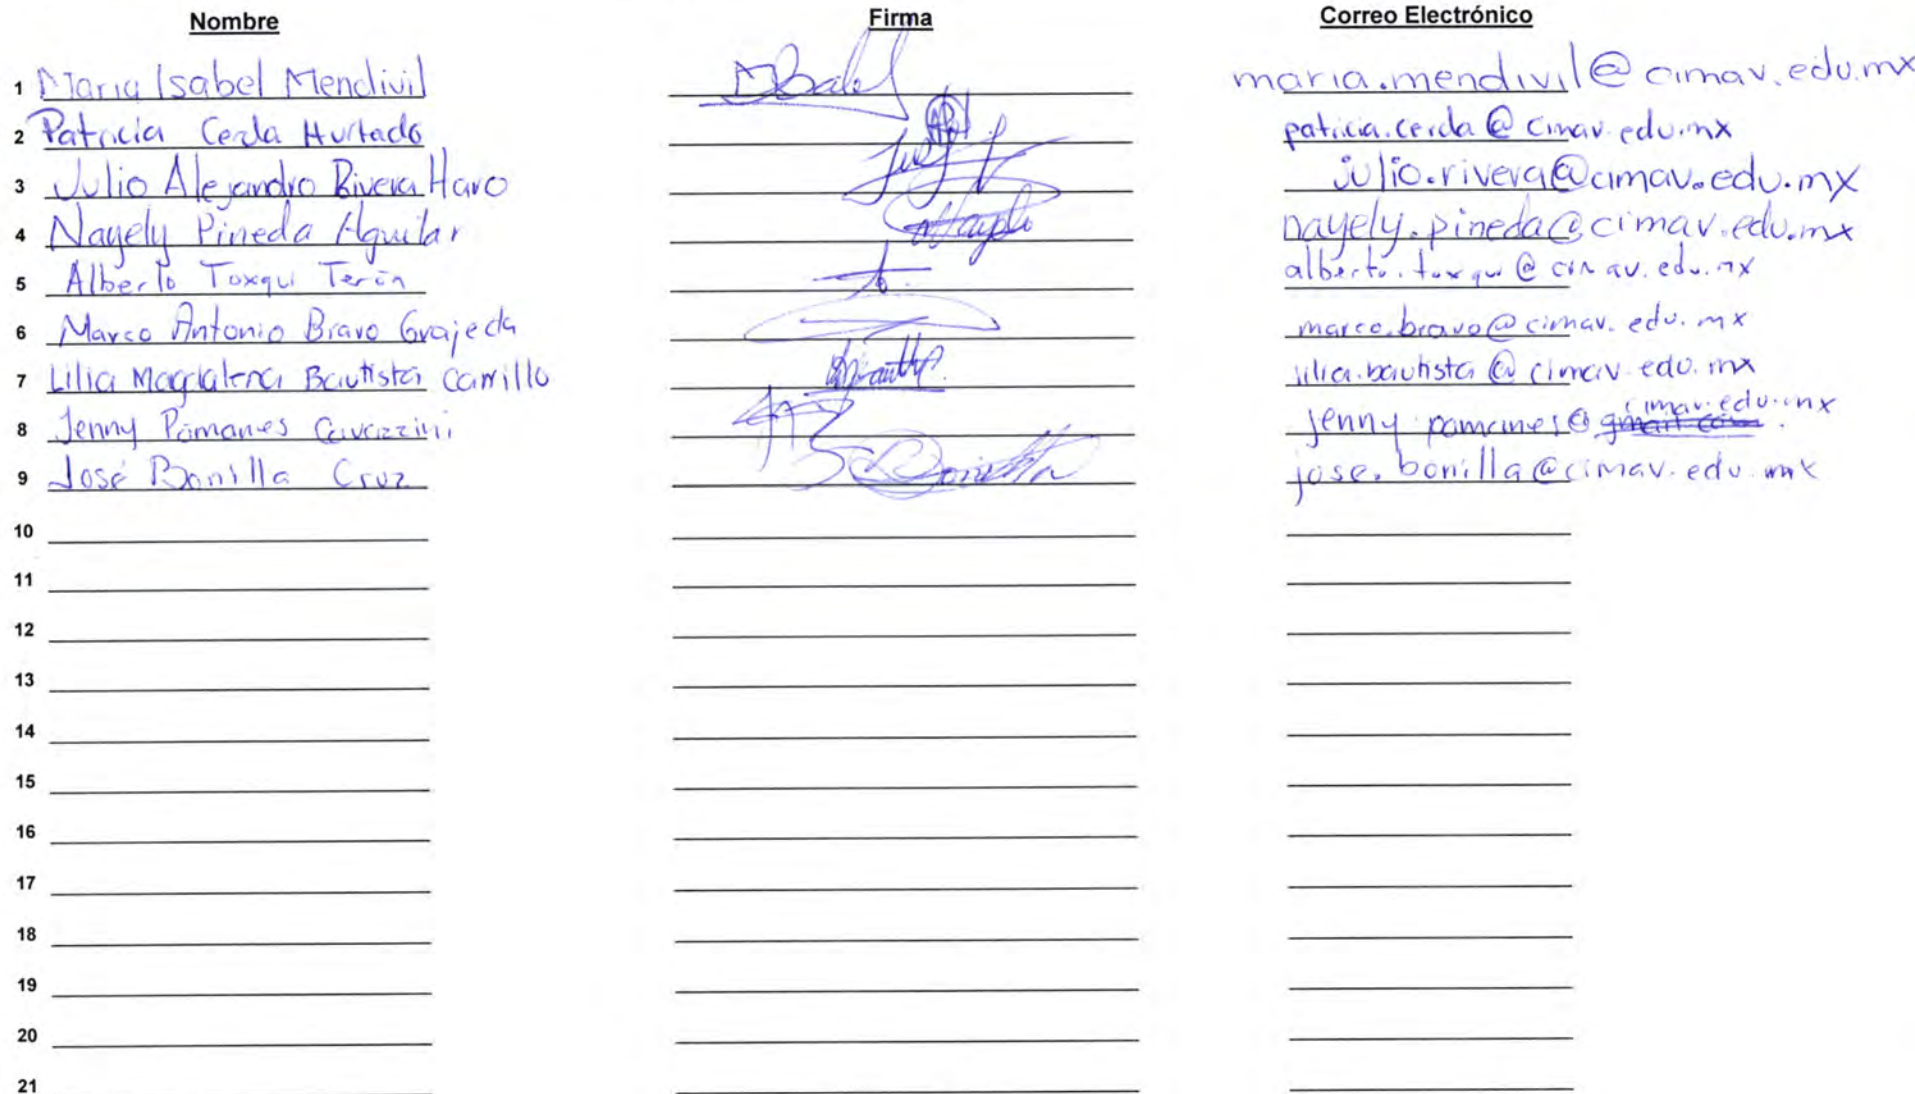 Nombre Firma Correo Electrónico
1 Maria Isabel Mendivil maria.mendivil@cimav.edu.mx
2 Patricia Cerda Hurtado patricia.cerda@cimav.edu.mx
3 Julio Alejandro Rivera Haro julio.rivera@cimav.edu.mx
4 Nayely Pineda Aguilar Nayely nayely.pineda@cimav.edu.mx
5 Alberto Toxqui Terán alberto.toxqui@cimav.edu.mx
6 Marco Antonio Bravo Grajeda marco.bravo@cimav.edu.mx
7 Lilia Magdalena Bautista Carrillo lilia.bautista@cimav.edu.mx
8 Jenny Pamanes Cavazzini jenny.pamanes@cimav.edu.mx
9 José Bonilla Cruz Bonilla jose.bonilla@cimav.edu.mx
10
11
12
13
14
15
16
17
18
19
20
21